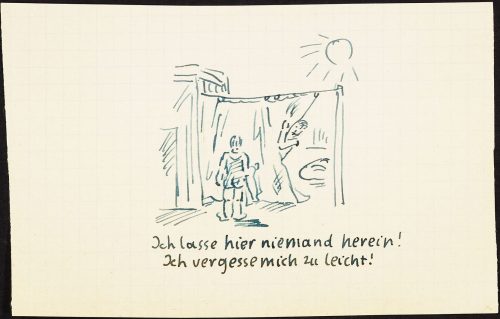 Ich lasse hier niemand herein!
Ich vergesse mich zu leicht!